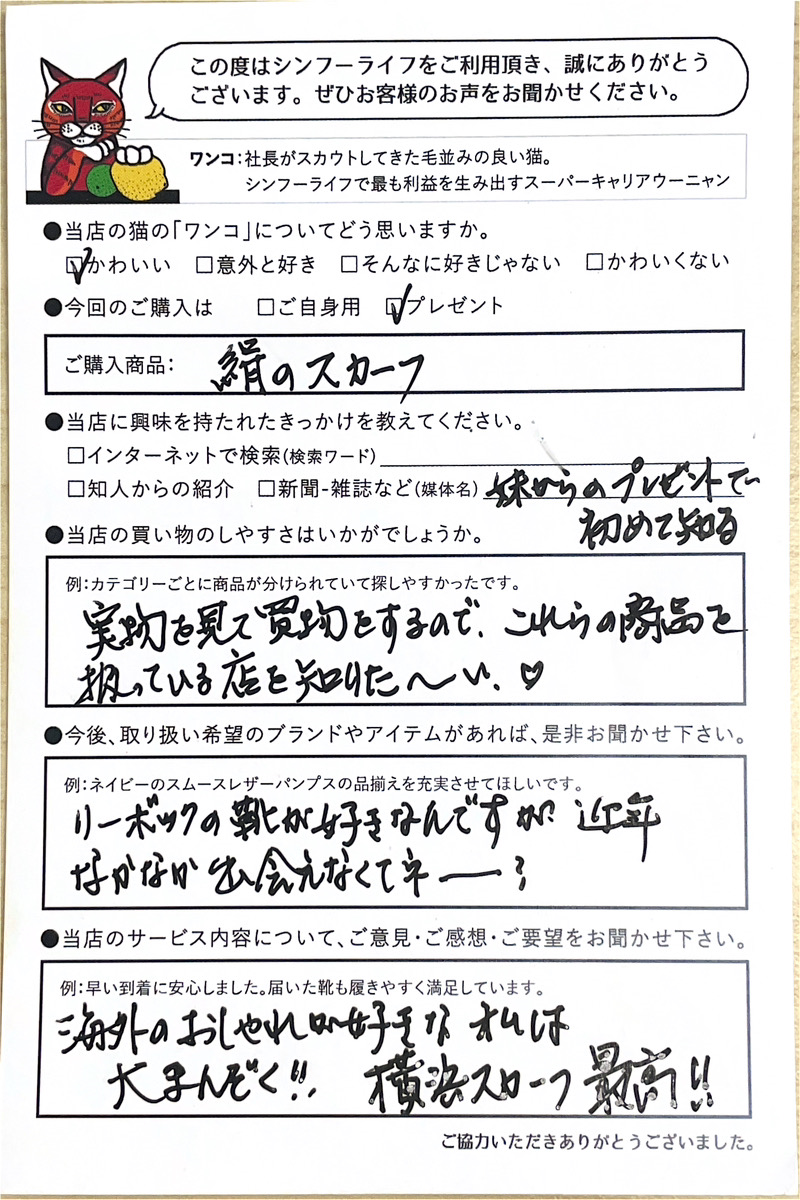 この度はシンフーライフをご利用頂き、誠にありがとう
ございます。ぜひお客様のお声をお聞かせください。
ワンコ：社長がスカウトしてきた毛並みの良い猫。
シンフーライフで最も利益を生み出すスーパーキャリアウーニャン
●当店の猫の「ワンコ」についてどう思いますか。
☑かわいい □意外と好き □そんなに好きじゃない □かわいくない
●今回のご購入は □ご自身用 ☑プレゼント
ご購入商品： 絹のスカーフ
●当店に興味を持たれたきっかけを教えてください。
□インターネットで検索(検索ワード)
□知人からの紹介 □新聞-雑誌など(媒体名) 妹からのプレゼントで
初めて知る
●当店の買い物のしやすさはいかがでしょうか。
例：カテゴリーごとに商品が分けられていて探しやすかったです。
実物を見て買物をするので、これらの商品を
扱っている店を知りた〜い、♡
●今後、取り扱い希望のブランドやアイテムがあれば、是非お聞かせ下さい。
例：ネイビーのスムースレザーパンプスの品揃えを充実させてほしいです。
リーボックの靴が好きなんですが 近年
なかなか出会えなくてネー？
●当店のサービス内容について、ご意見・ご感想・ご要望をお聞かせ下さい。
例：早い到着に安心しました。届いた靴も履きやすく満足しています。
海外のおしゃれが好きな私は
大まんぞく!! 横浜スカーフ最高!!
ご協力いただきありがとうございました。